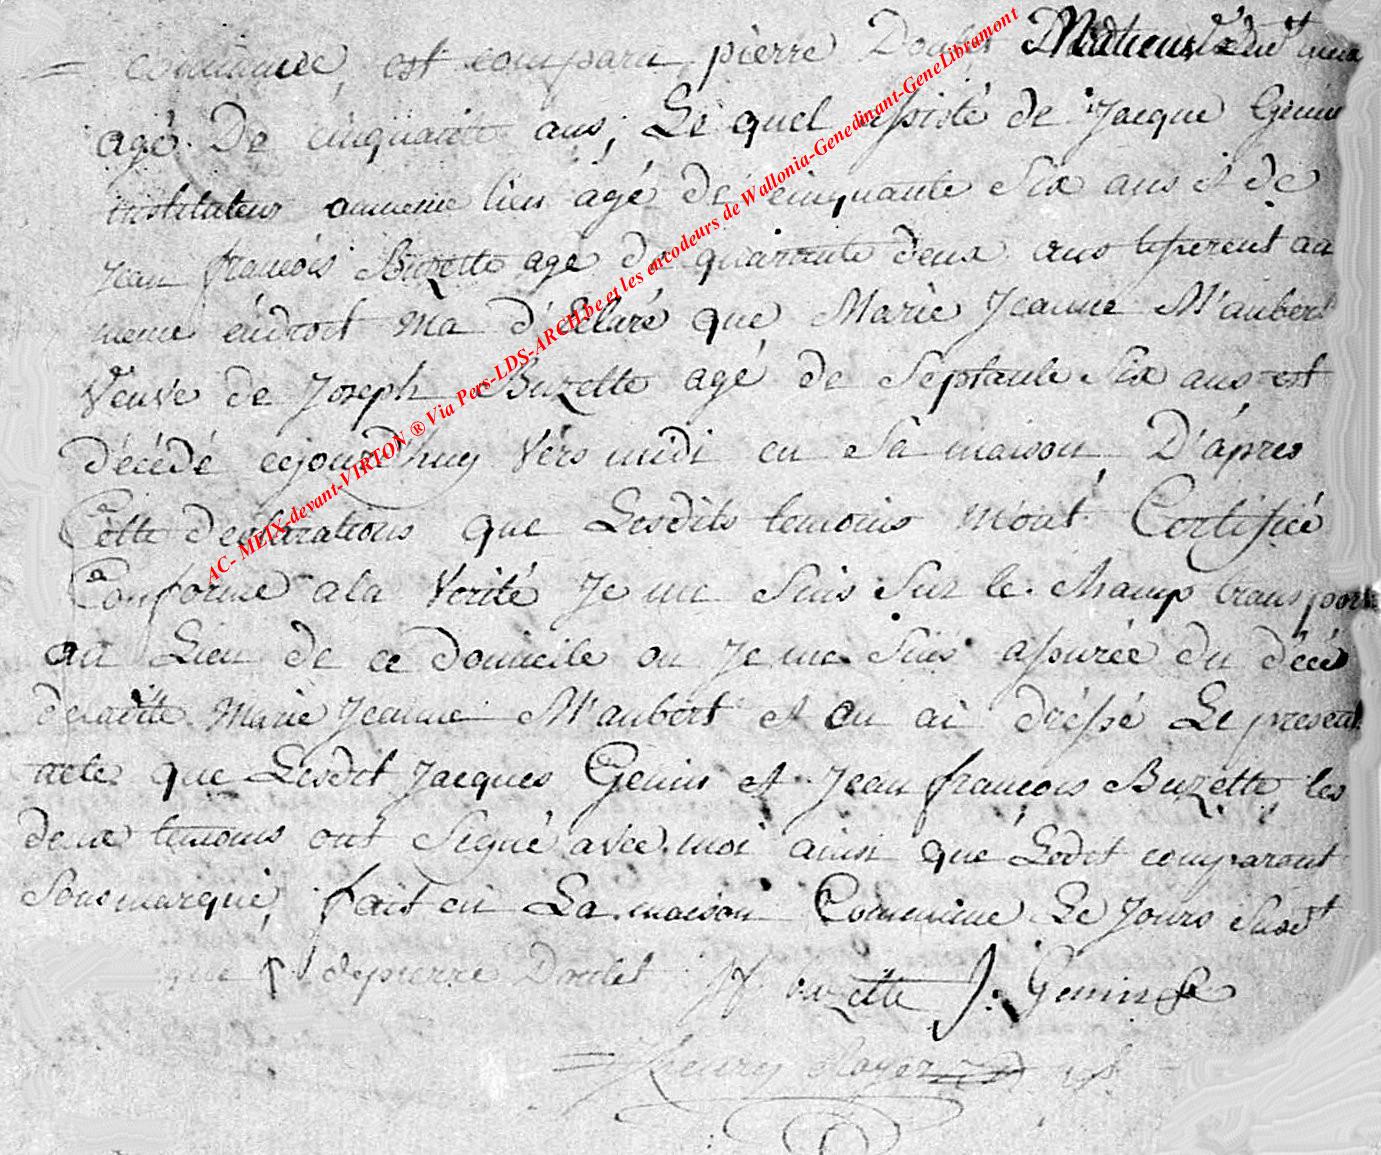 = commune, est comparu pierre Doulet
agé De cinquante ans, Le quel assisté de Jacque Genin
instituteur aumeme lieu agé de cinquante Six ans et de
Jean françois Buzette agé de quarente deux ans
meme endroit ma d'éclaré que Marie Jeanne M'aubert
Veuve de Joseph Buzette agé de Séptante Six ans est
décédé cejourd'huy Vérs midi en Sà maison, D'âpres
Cette declarations que Lesdits temoins m'ont Certifiée
Conforme a la Vérité Je me Suis Sur le champ transporté
au Lieu de ce domicile ou Je me Suis assurée du décé
deladite Marie Jeanne M'aubert et en ai dréssé Le present
acte que Lesdit Jacques Genin et Jean françois Buzette les
deux temoins ont Signé avec moi ainsi que Ledit comparant
Sousmarqué, fait en La maison Commune Le Jours Susdit
depierre Doulet J f buzette J. Genin
henry
AC- MEIX-devant-VIRTON ® Via Pers-LDS-ARCH.be et les encodeurs de Wallonia-Genedinant-GeneLibramont